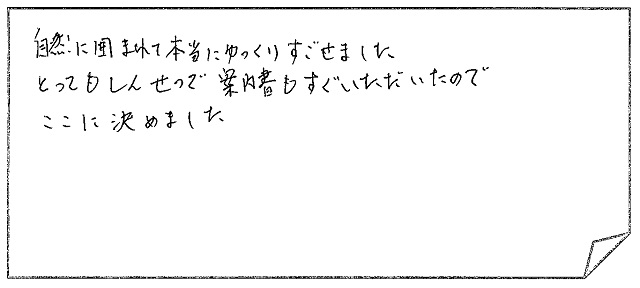 自然に囲まれて本当にゆっくりすごせました
とってもしんせつで案内書もすぐいただいたので
ここに決めました